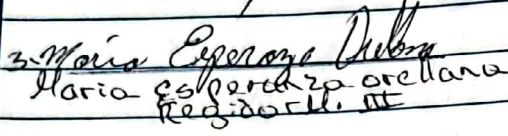 3. María Esperanza
Maria esperanza orellana
Regidor M. III